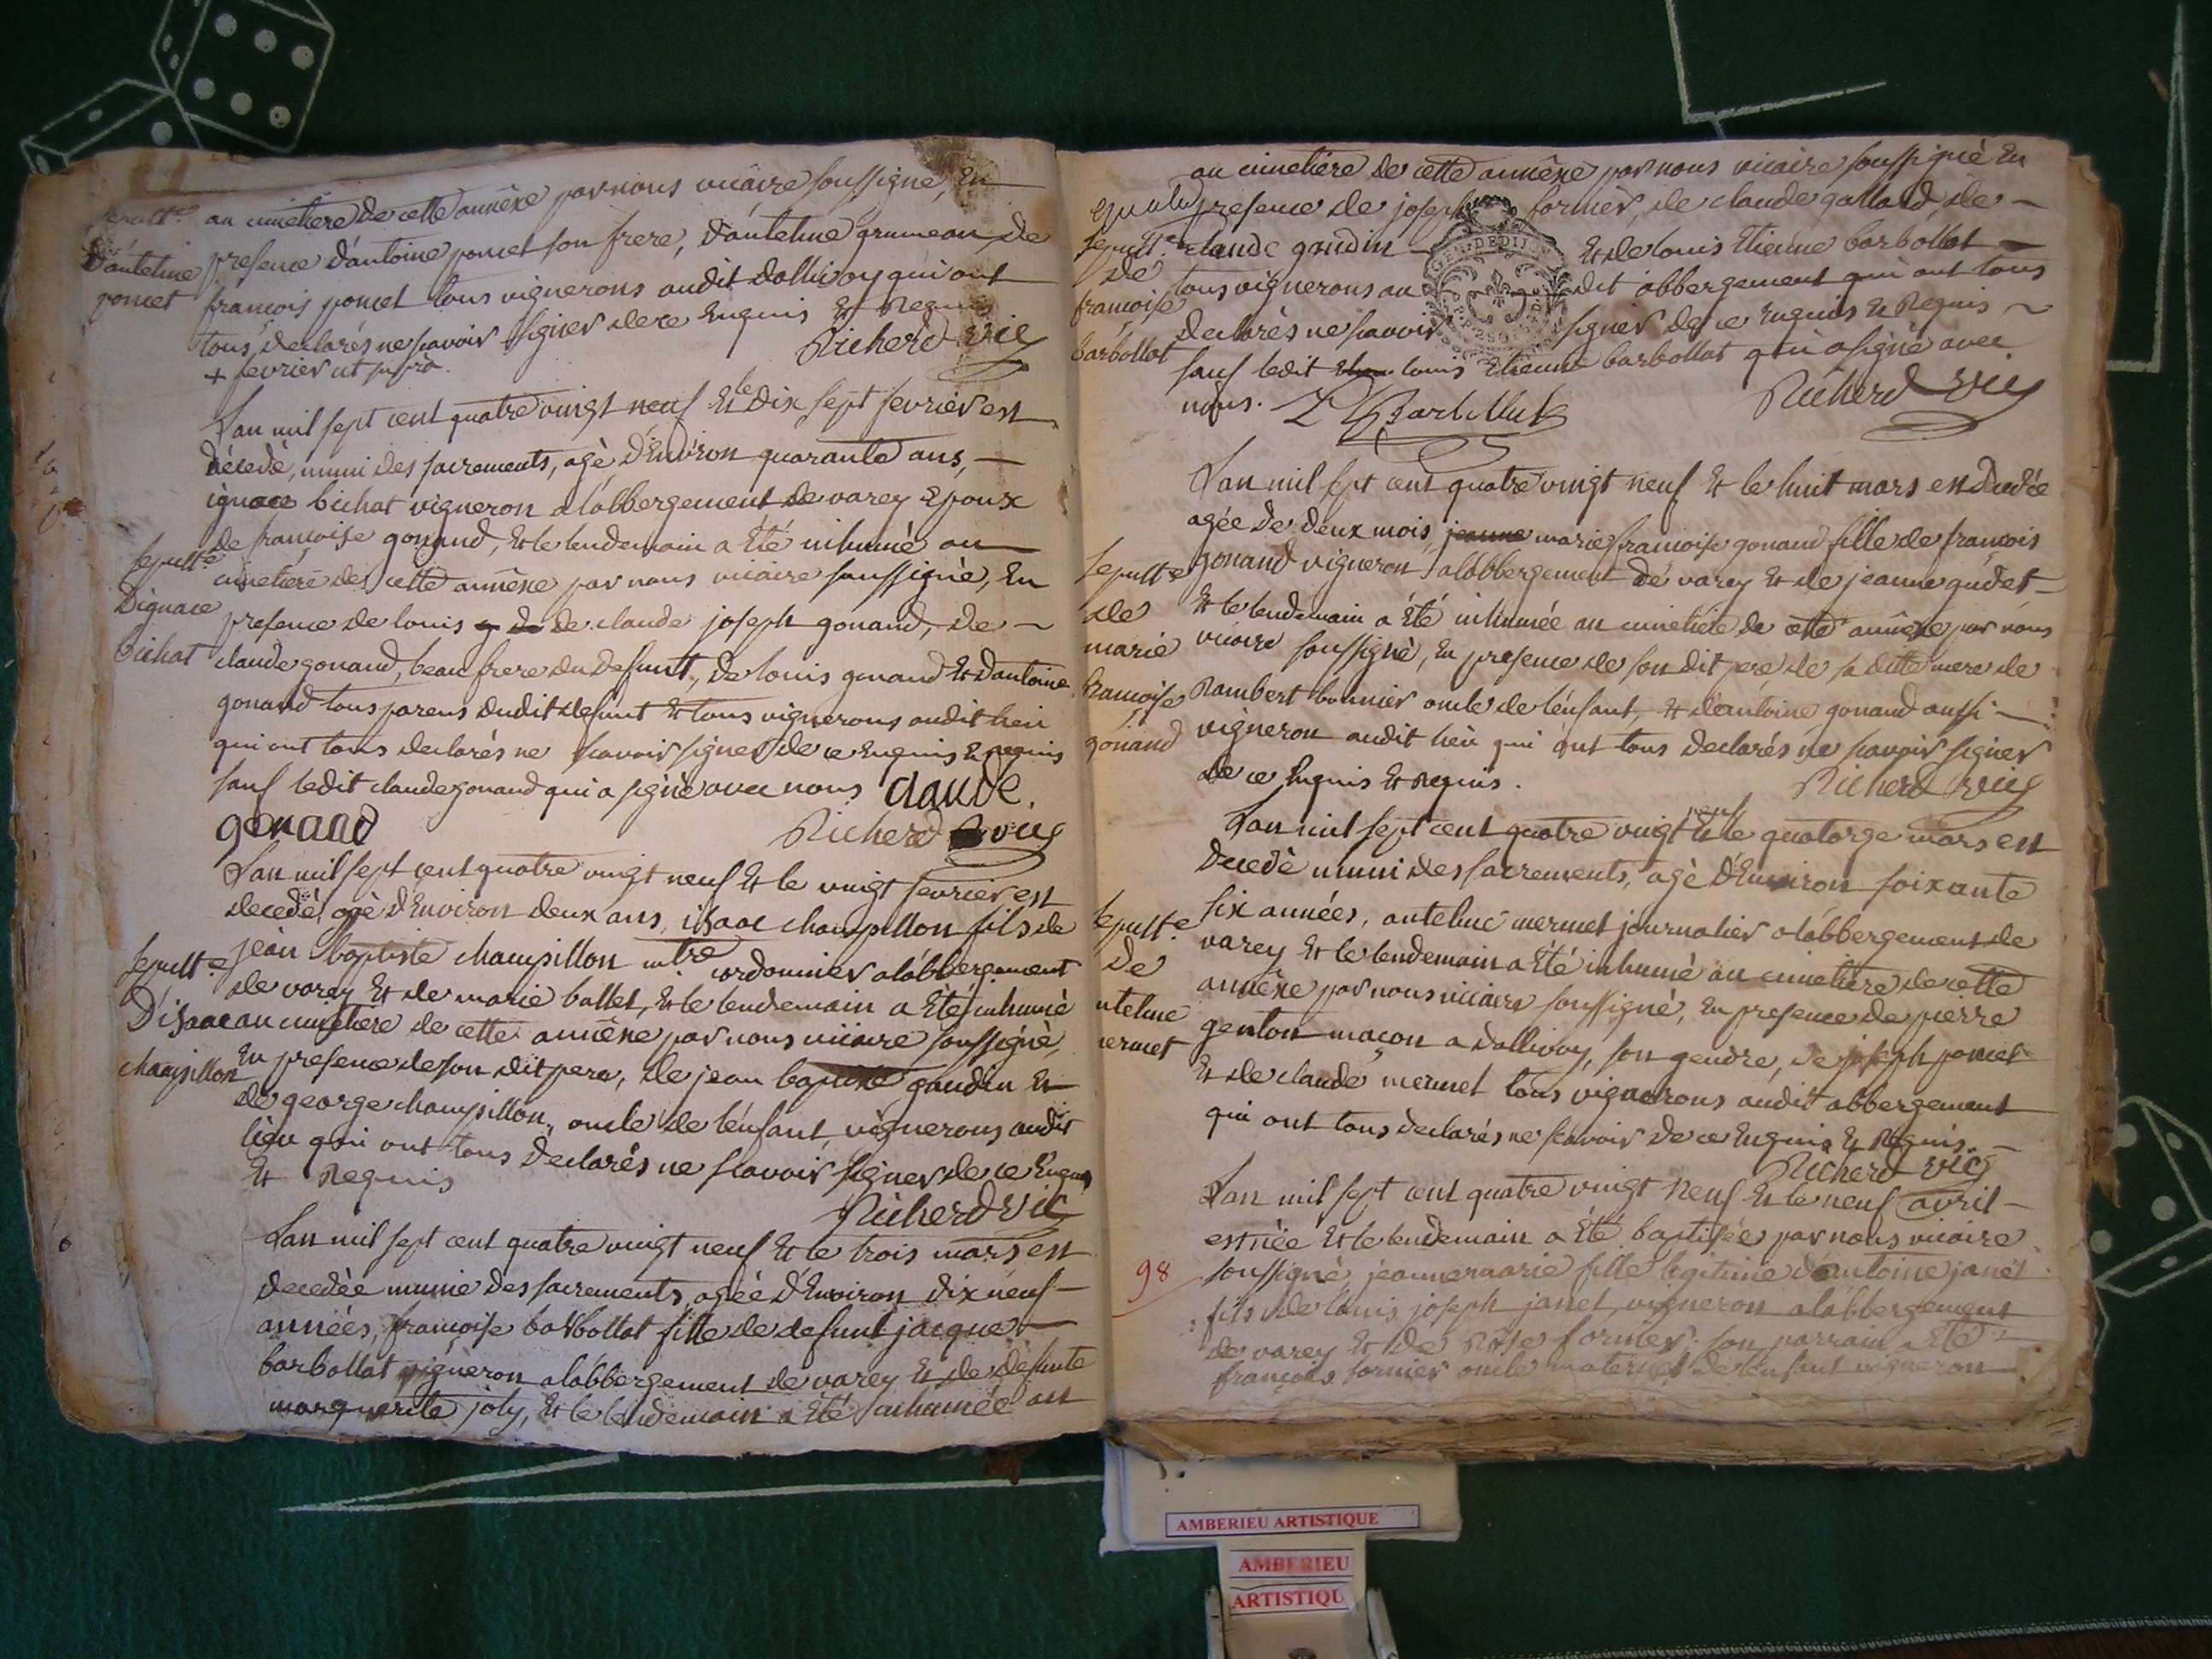 sepult.e
D'antelme
poncet
au cimetiere de cette annêxe par nous vicaire soussigné, En
presence d'antoine poncet son frere, d'antelme grumeau, de
françois poncet tous vignerons audit Dallivoy qui ont
tous declarés ne scavoir signer de ce Enquis Et Requis
+ fevrier ut suprà. Richerd Vic
L'an mil sept cent quatre vingt neuf Et le Dix sept fevrier est
décedé, muni des sacrements, agé d'Environ quarante ans,
ignace bichat vigneron a l'abbergement de varey Epoux
de françoise gonand, Et le lendemain a Eté inhumé au
sepult.e
D'ignace
bichat
cimetiere de cette annêxe par nous vicaire soussigné, En
presence de louis de claude joseph gonand, de
claude gonand, beau frere du defunt, de louis gonand Et d'antoine
gonand tous parens dudit defunt Et tous vignerons audit lieu
qui ont tous declarés ne scavoir signer de ce Enquis Et Requis
sauf ledit claude gonand qui a signé avec nous claude
gonand Richerd vic
L'an mil sept cent quatre vingt neuf Et le vingt fevrier est
decedé, agé d'Environ deux ans, isaac champillon fils de
sepult.e
D'isaac
champillon
jean baptiste champillon mtre cordonnier a l'abbergement
de varey Et de marie ballet, Et le lendemain a Eté inhumé
au cimetiere de cette annêxe par nous vicaire soussigné,
En presence de son dit pere, de jean baptiste gaudin Et
de george champillon, oncle de l'enfant, vignerons audit
lieu qui ont tous declarés ne scavoir signer de ce Enquis
Et Requis Richerd Vic
L'an mil sept cent quatre vingt neuf Et le trois mars est
decedée munie des sacrements, agée d'Environ dix neuf
années, françoise barbollat fille de defunt jacque
barbollat vigneron a l'abbergement de varey Et de defunte
marguerite joly, Et le lendemain a Eté inhumée au
au cimetiere de cette annêxe par nous vicaire soussigné En
sepult.e
de
françoise
barbollat
presence de joseph fornier, de claude gallard, de
claude gaudin Et de louis Etienne barbollat
tous vignerons au dit abbergement qui ont tous
declarés ne scavoir signer de ce Enquis Et Requis
sauf ledit louis Etienne barbollat qui a signé avec
nous. L E Barbollat Richerd Vic
GEN. DE DIJON
L'an mil sept cent quatre vingt neuf Et le huit mars est decedée
agée de deux mois, jeanne marie françoise gonand fille de françois
sepult.e
de
marie
francoise
gonand
gonand vigneron a l'abbergement de varey Et de jeanne gudet
Et le lendemain a Eté inhumée au cimetiere de cette annêxe par nous
vicaire soussigné, En presence de son dit pere de sa dite mere de
Rambert bonnier oncle de l'enfant, Et d'antoine gonand aussi
vigneron audit lieu qui ont tous declarés ne scavoir signer
de ce Enquis Et Requis. Richerd Vic
L'an mil sept cent quatre vingt neuf Et le quatorze mars est
Decedé muni des sacrements, agé d'Environ soixante
sepult.e
De
ntelme
ermet
six années, antelme mermet journalier a l'abbergement de
varey Et le lendemain a Eté inhumé au cimetiere de cette
annêxe par nous vicaire soussigné, En presence de pierre
genton maçon a Dallivoy, son gendre, de joseph poncet
Et de claude mermet tous vignerons audit abbergement
qui ont tous declarés ne scavoir de ce Enquis Et Requis.
Richerd Vic
L'an mil sept cent quatre vingt Neuf Et le neuf avril
est née Et le lendemain a Eté baptisée par nous vicaire
98
soussigné, jeanne marie fille legitime d'antoine janet
fils de louis joseph janet, vigneron a l'abbergement
de varey Et de Rose fornier. son parrain a Eté
françois fornier oncle maternel de l'enfant vigneron
AMBERIEU ARTISTIQUE
AMBERIEU
ARTISTIQU